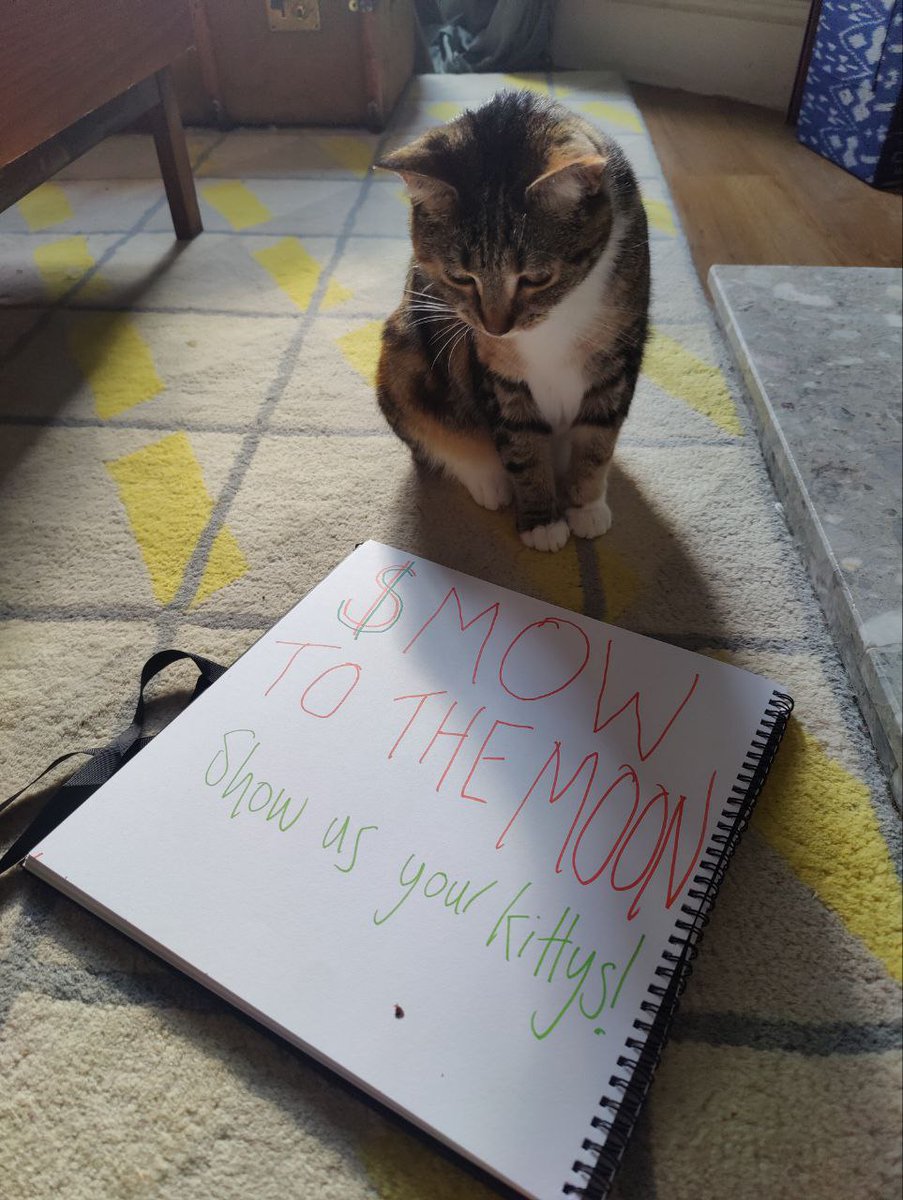 $MOW
TO THE MOON
Show us your kittys!